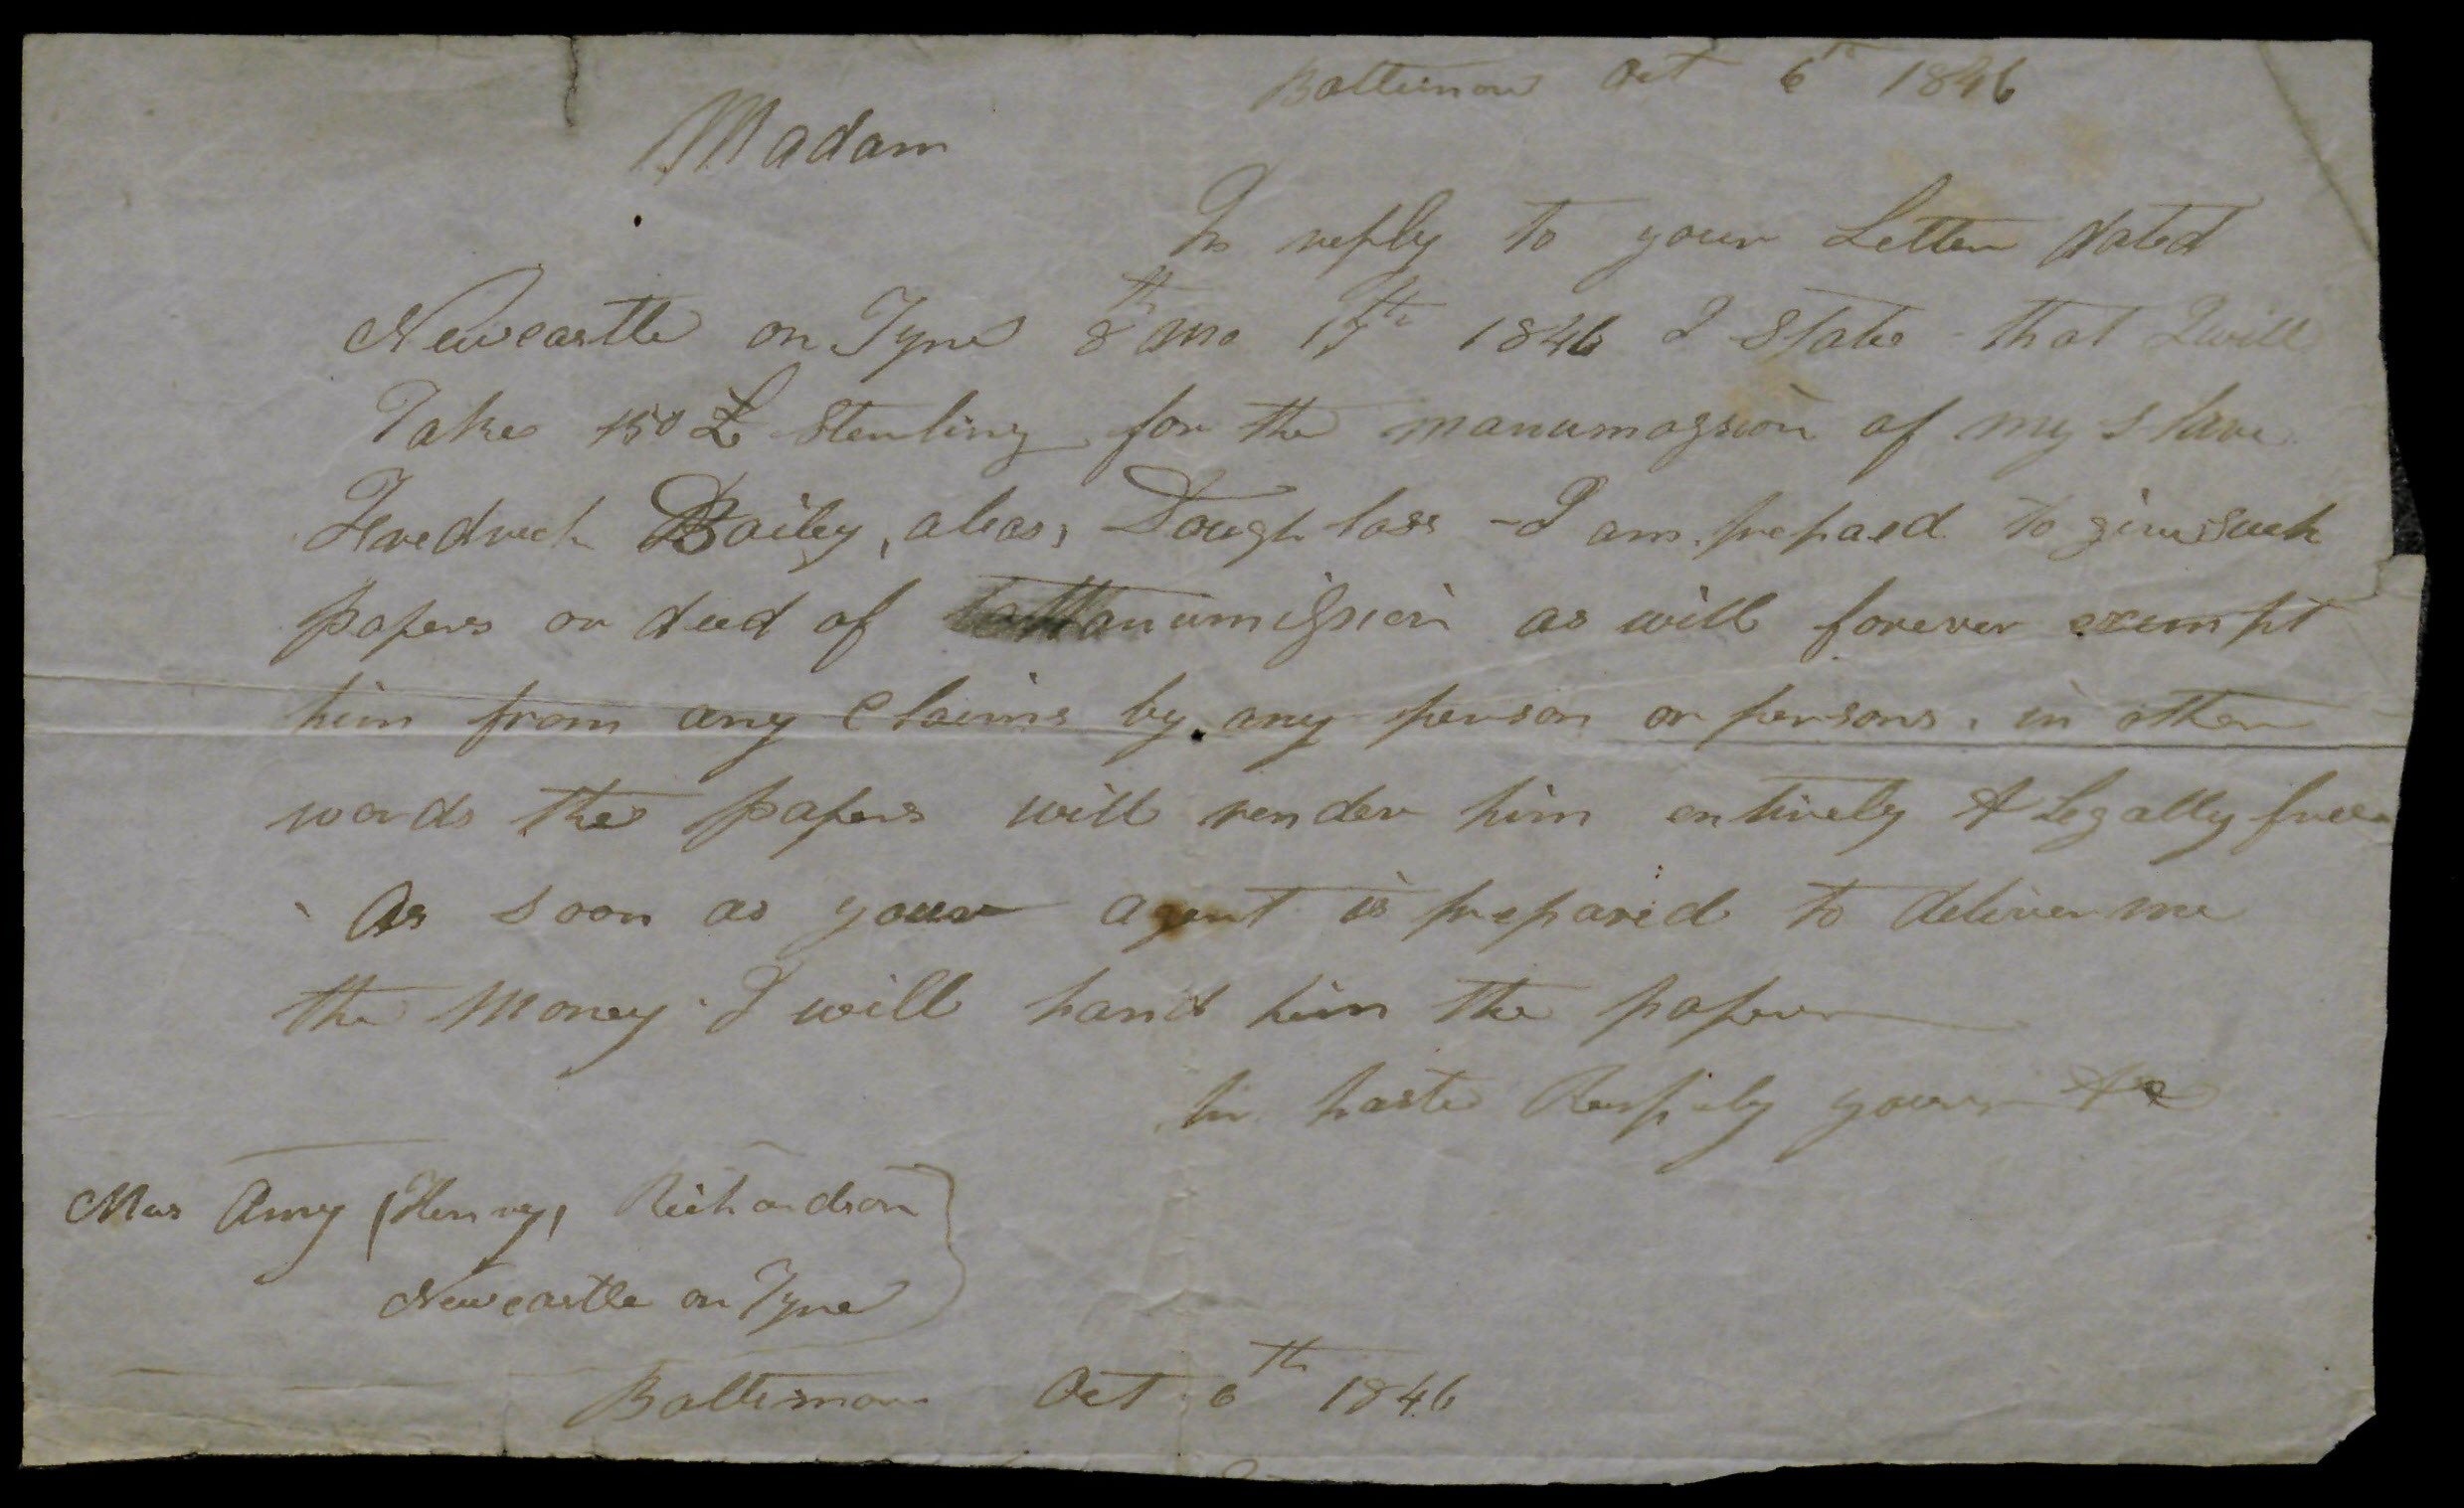 Baltimore Oct 6th 1846
Madam
In reply to your Letter dated
Newcastle on Tyne 8th mo 17th 1846 I State that I will
Take 150 £ Sterling for the manumission of my slave
Fredrick Bailey, alias, Douglass - I am prepaed to give such
papers or deed of Manumission as will forever exempt
him from any Claims by any person or persons, in other
words the papers will render him entirely & Legally free
As soon as your agent is prepared to deliver me
the Money. I will hand him the papers
In haste Respcly yours &c
Mrs Amy (Henry) Richardson
Newcastle on Tyne
Baltimore Oct 6th 1846